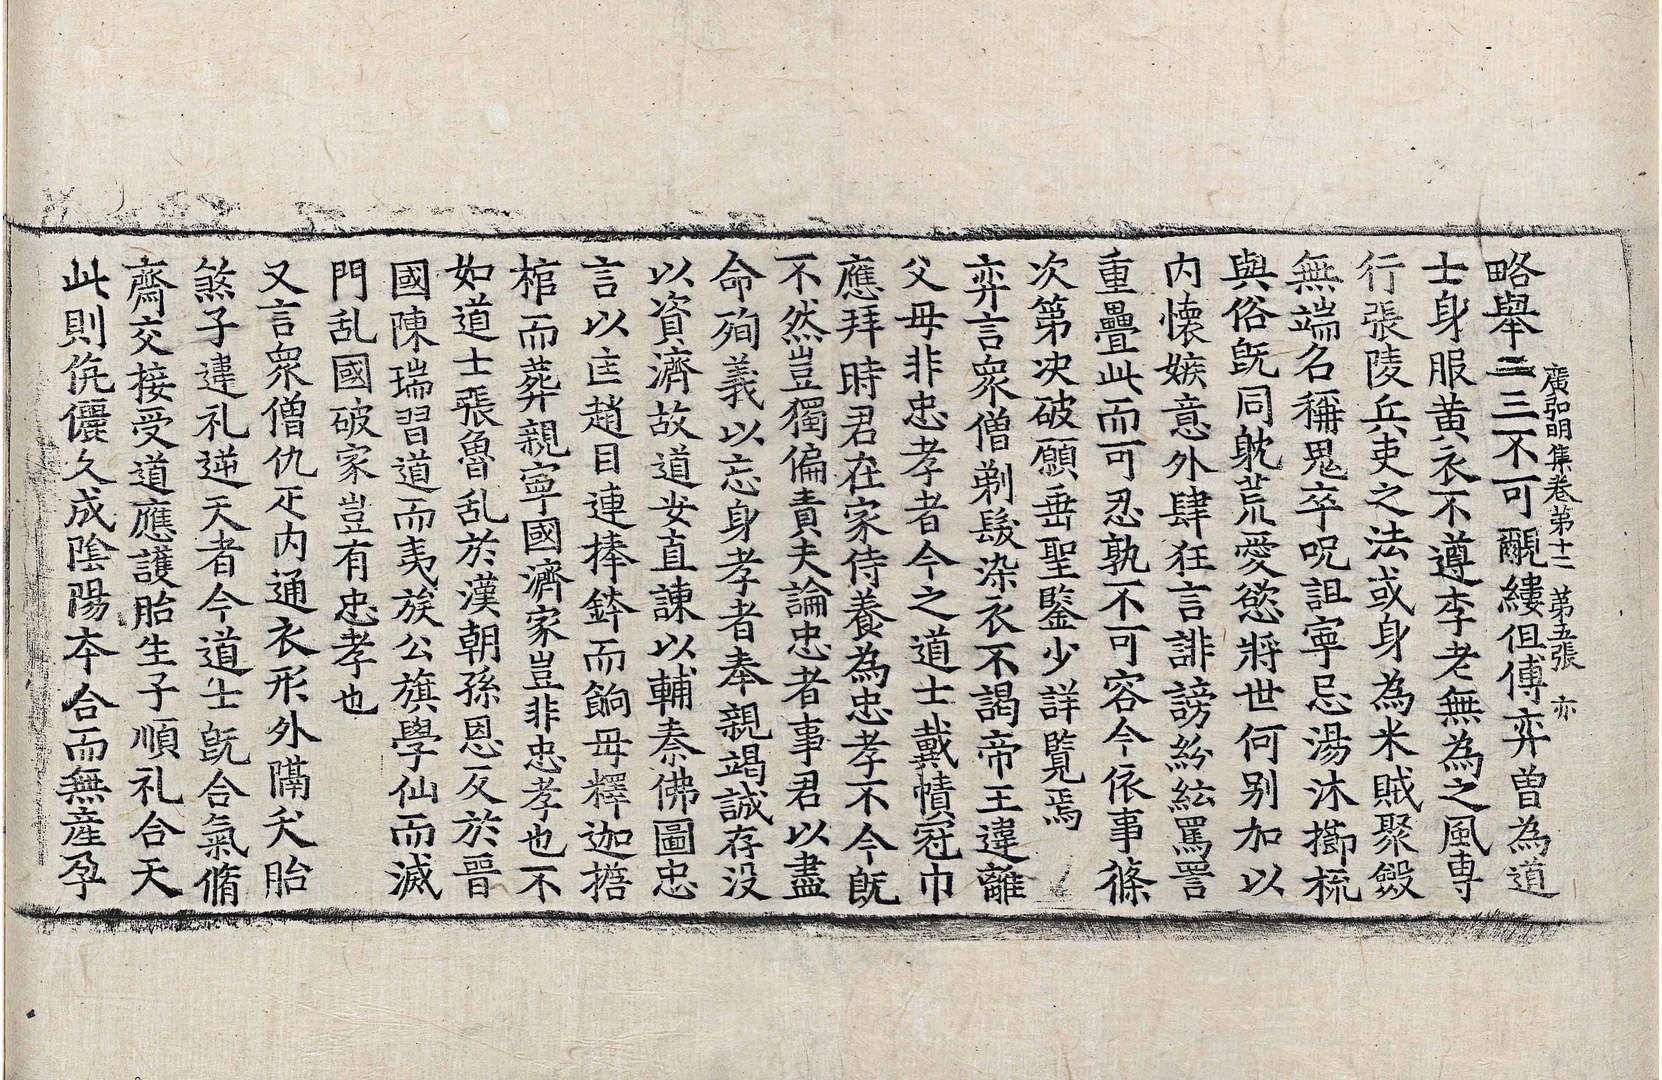 廣弘明集卷第十二 第五張 亦
略舉二三不可覼縷但傅弈曽為道
士身服黄衣不遵李老無為之風專
行張陵兵吏之法或身為米賊聚斂
無端名稱鬼卒呪詛寧忌湯沐擳梳
與俗旣同躭荒愛慾將世何别加以
内懷嫉意外肆狂言誹謗紛紜罵詈
重疊此而可忍孰不可容今依事條
次第決破願垂聖鑒少詳覽焉
弈言衆僧剃髮染衣不謁帝王違離
父母非忠孝者今之道士戴幘冠巾
應拜時君在家侍養為忠孝不今旣
不然豈獨偏責夫論忠者事君以盡
命殉義以忘身孝者奉親竭誠存没
以資濟故道安直諫以輔秦佛圖忠
言以匡趙目連捧鉢而餉母釋迦擔
棺而葬親寧國濟家豈非忠孝也不
如道士張魯乱於漢朝孫恩反於晉
國陳瑞習道而夷族公旗學仙而滅
門乱國破家豈有忠孝也
又言衆僧仇疋内通衣形外隔夭胎
煞子違礼逆天者今道士旣合氣脩
齋交接受道應護胎生子順礼合天
此則伉儷久成陰陽夲合而無產孕